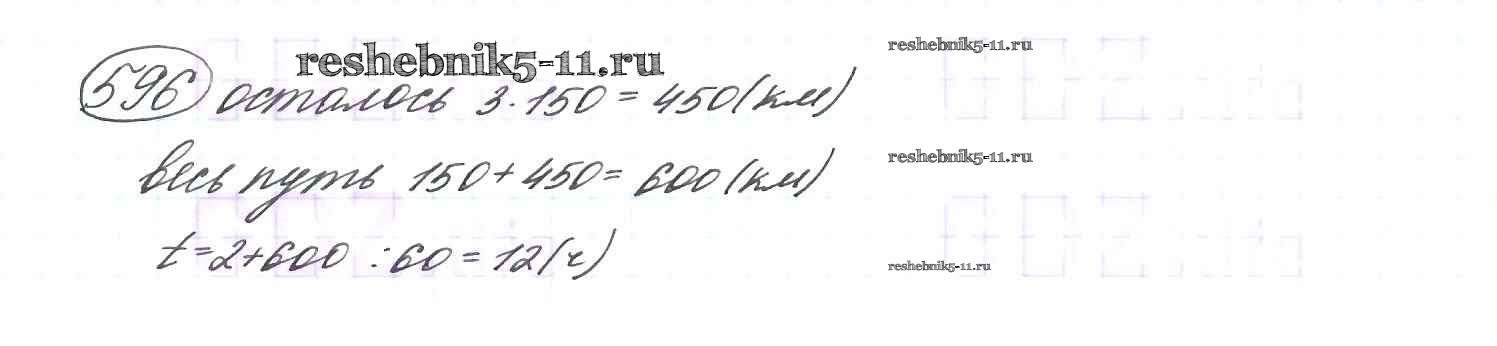 reshebnik5-11.ru
reshebnik5-11.ru
596 осталось 3·150=450(км)
весь путь 150+450=600(км)
reshebnik5-11.ru
t=2+600:60=12(ч)
reshebnik5-11.ru